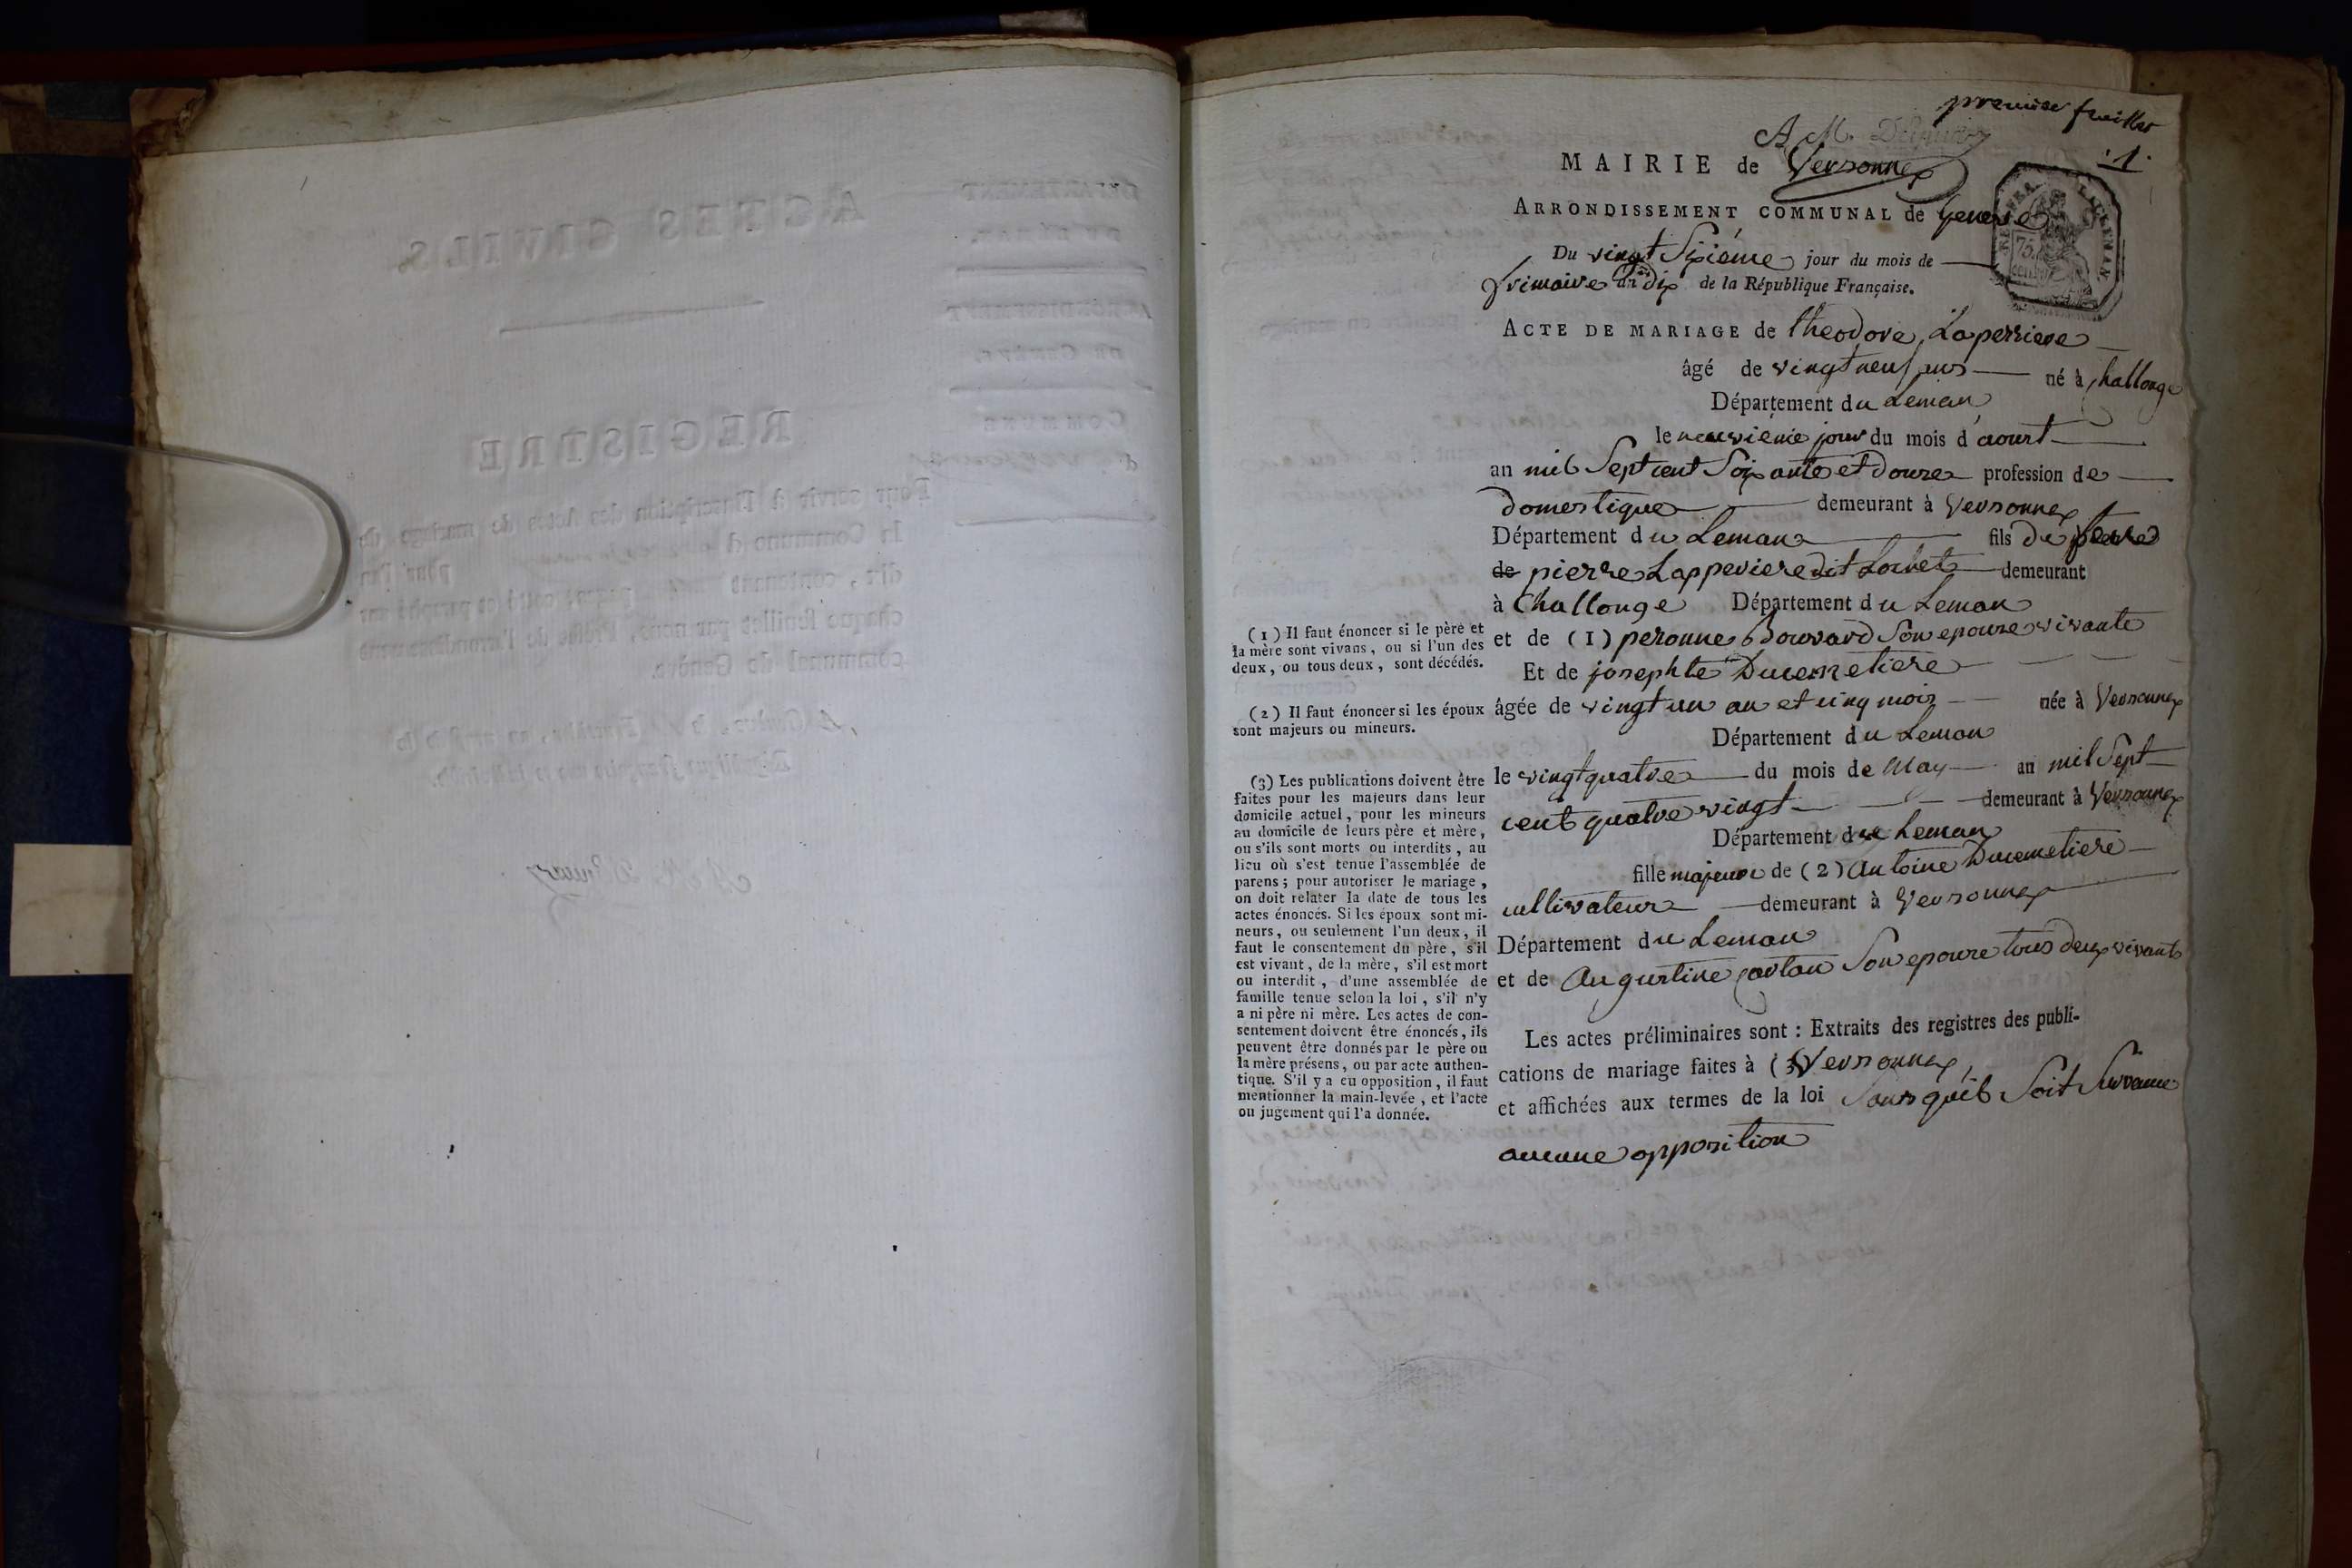 premier feuillet
1
A. M.
MAIRIE de Versonnex
ARRONDISSEMENT COMMUNAL de Geneve
Du vingt Sixiéme jour du mois de
frimaire an dix de la République Française.
75
ACTE DE MARIAGE de theodore Laperriere
âgé de vingt neuf ans né à Challonge
Département du Leman
le neuvième jour du mois d'aoust
an mil Sept cent Soixante et douze profession de
domestique demeurant à Versonnex
Département du Leman fils de
de pierre Lapperiere dit demeurant
à Challonge Département du Leman
et de (1) peronne Bouvard Son epouse vivante
Et de josephte Ducemetiere
âgée de vingt un an et cinq mois née à Versonnex
Département du Leman
le vingt quatre du mois de May an mil Sept
cent quatre vingt demeurant à Versonnex
Département du Leman
fille majeure de (2) Antoine Ducemetiere
cultivateur demeurant à Versonnex
Département du Leman
et de Augustine Son epouse tous deux vivants
Les actes préliminaires sont : Extraits des registres des publi-
cations de mariage faites à (3) Versonnex
et affichées aux termes de la loi Sans qu'il Soit Survenue
aucune opposition
(1) Il faut énoncer si le père et
la mère sont vivans, ou si l'un des
deux, ou tous deux, sont décédés.
(2) Il faut énoncer si les époux
sont majeurs ou mineurs.
(3) Les publications doivent être
faites pour les majeurs dans leur
domicile actuel, pour les mineurs
au domicile de leurs père et mère,
ou s'ils sont morts ou interdits, au
lieu où s'est tenue l'assemblée de
parens ; pour autoriser le mariage,
on doit relater la date de tous les
actes énoncés. Si les époux sont mi-
neurs, ou seulement l'un deux, il
faut le consentement du père, s'il
est vivant, de la mère, s'il est mort
ou interdit, d'une assemblée de
famille tenue selon la loi, s'il n'y
a ni père ni mère. Les actes de con-
sentement doivent être énoncés, ils
peuvent être donnés par le père ou
la mère présens, ou par acte authen-
tique. S'il y a eu opposition, il faut
mentionner la main-levée, et l'acte
ou jugement qui l'a donnée.